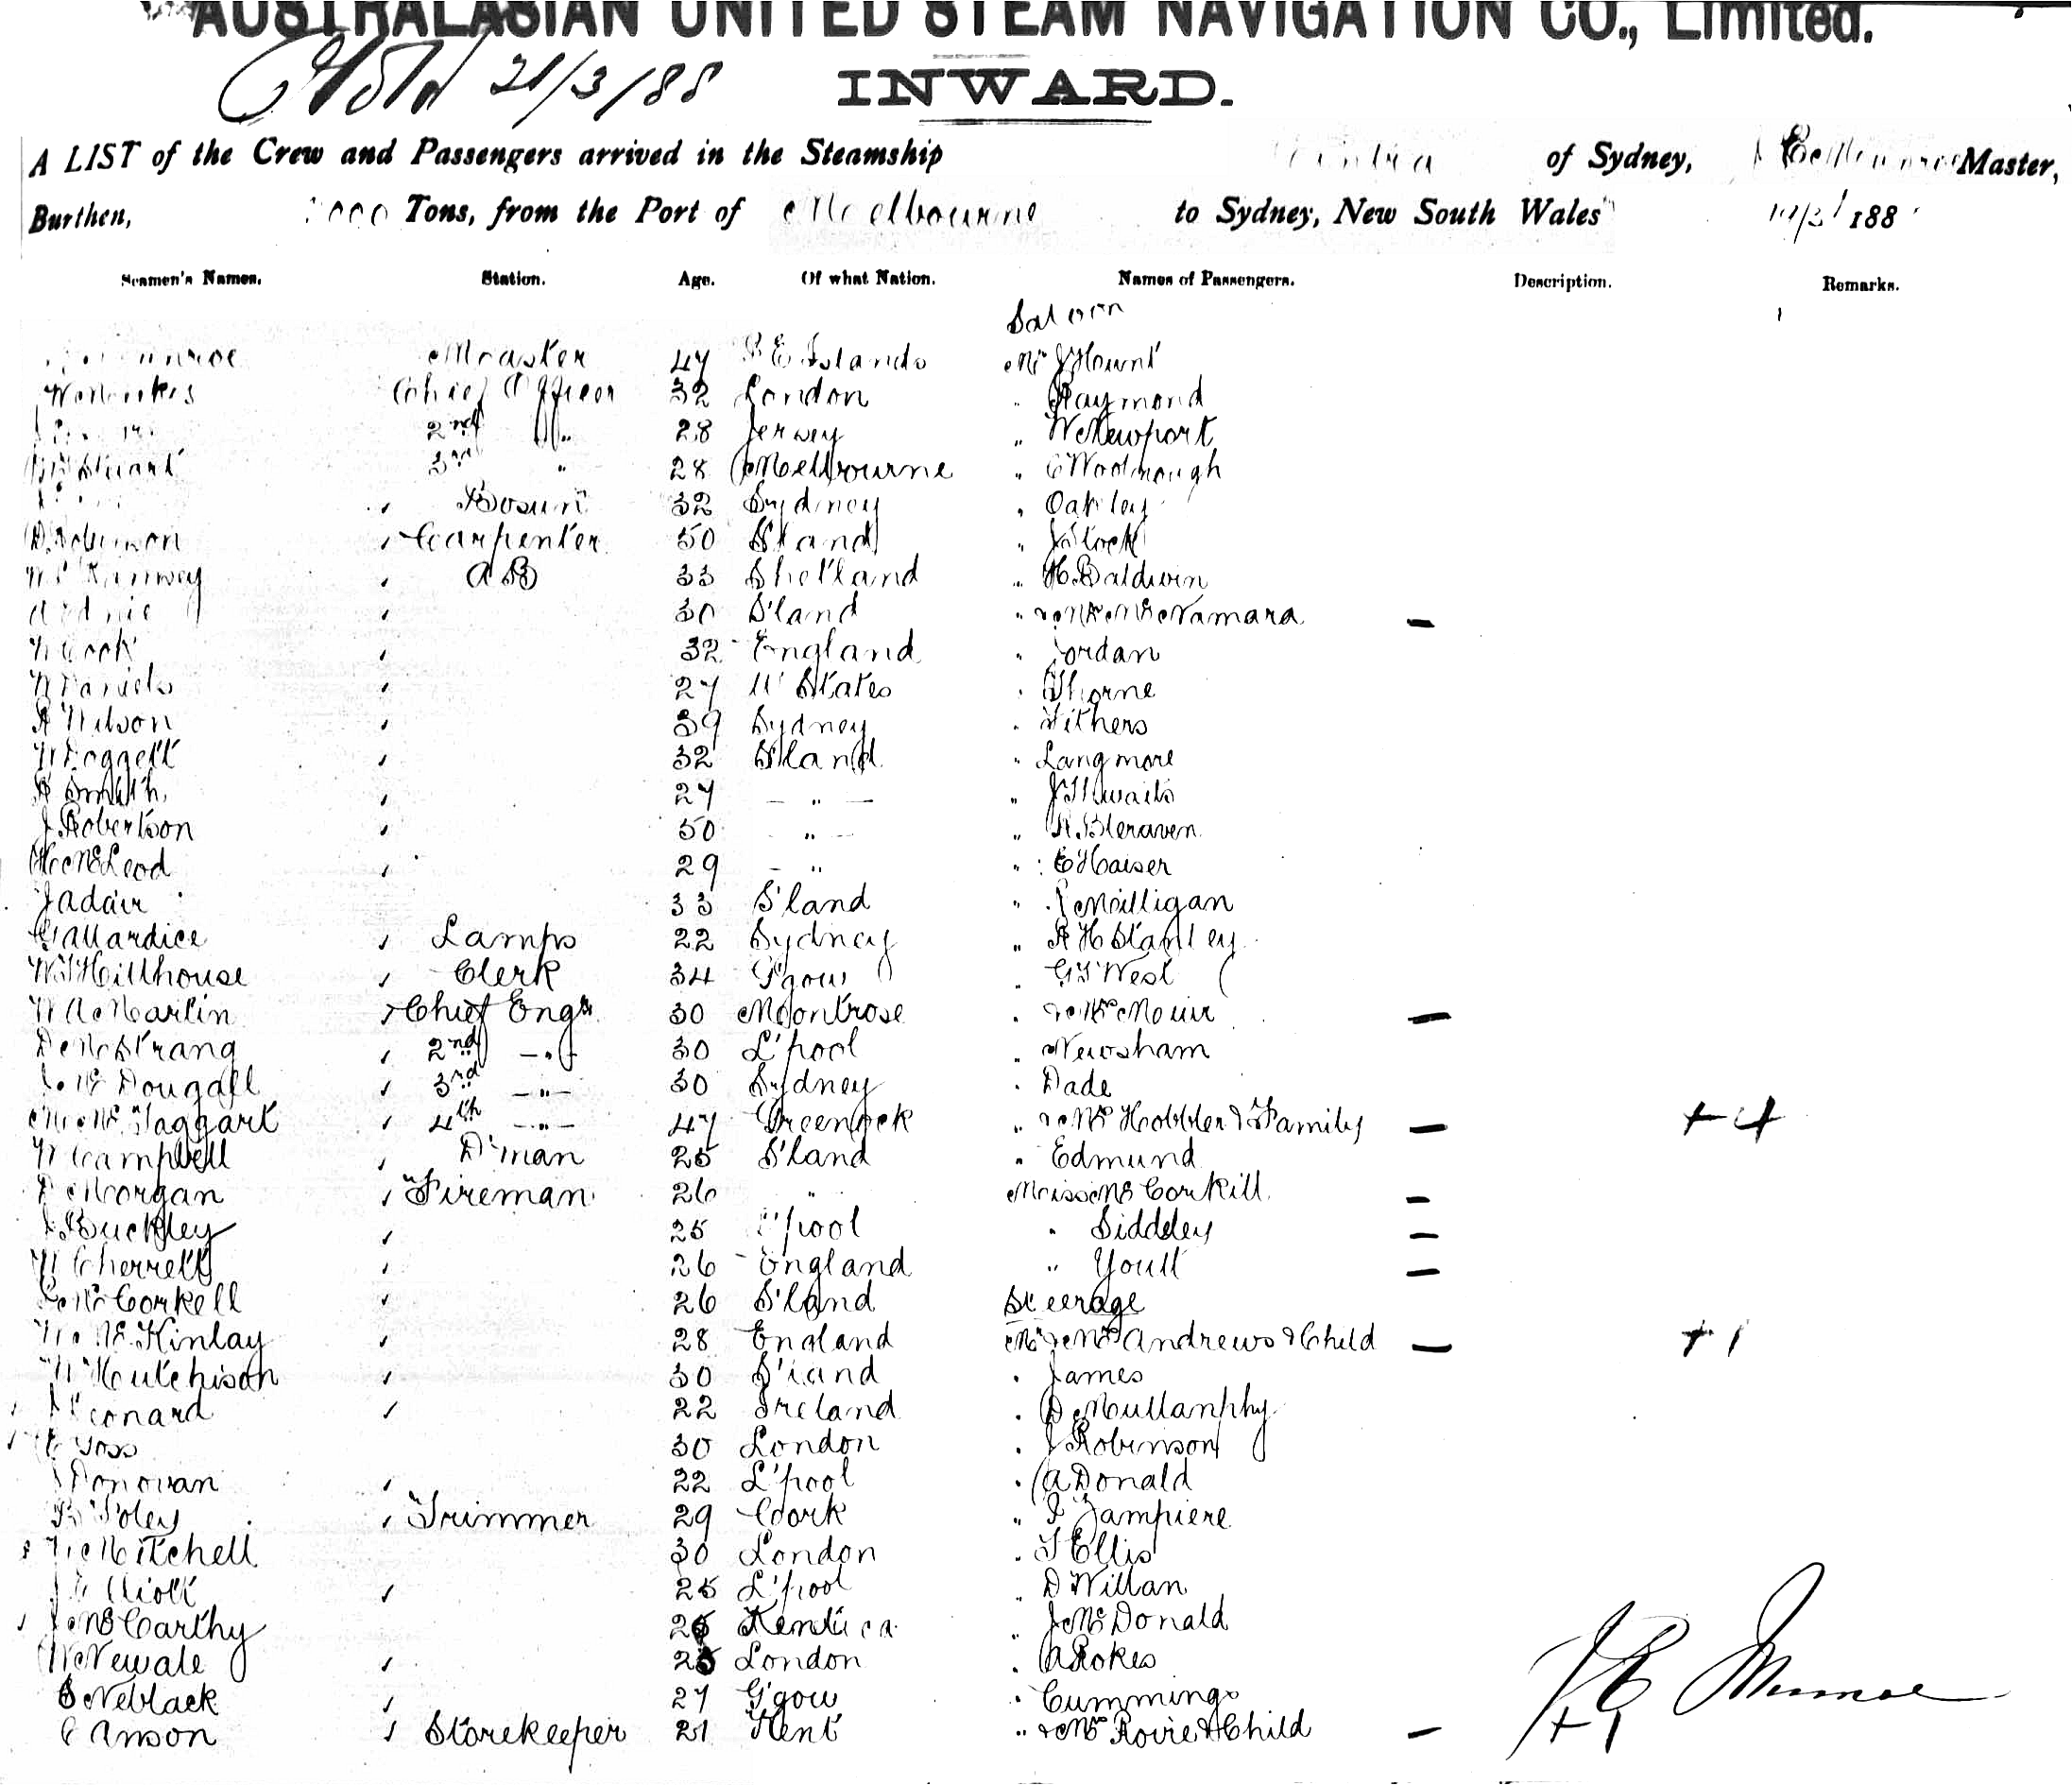 AUSTRALASIAN UNITED STEAM NAVIGATION CO., Limited.
21/3/88
INWARD.
A LIST of the Crew and Passengers arrived in the Steamship of Sydney, Master,
Burthen, Tons, from the Port of Melbourne to Sydney, New South Wales 188
Seamen's Names. Station. Age. Of what Nation. Names of Passengers. Description. Remarks.
Saloon
Master 47 Islands Mr J Hunt
Chief Officer 32 London " Raymond
2nd " 28 Jersey " W Newport
Stuart 3rd " 28 Melbourne " C Woolnough
Bosun 32 Sydney " Oakley
Carpenter 50 S'land " J Block
AB 33 Shetland " H Baldwin
30 S'land " & Mrs McNamara –
W Cook 32 England " Jordan
W Daniels 27 U States " Thorne
A Wilson 39 Sydney " Withers
W Doggett 32 S'land " Langmore
A Smith 27 – " – " J Thwaits
J Robertson 50 – " – " Bleraven
McLeod 29 – " " E Kaiser
J Adair 33 S'land " Milligan
Gallardice Lamps 22 Sydney " A H Stanley
W J Hillhouse Clerk 34 G'gow " G J West
W A Martin Chief Engr 30 Montrose " & Mrs Mouir –
D M Strang 2nd – " – 30 L'pool " Newsham
McDougall 3rd – " – 30 Sydney " Dade
McTaggart 4th – " – 47 Greenock " & Mrs Hobbler & Family – + 4
W Campbell D'man 25 S'land " Edmund
D Morgan Fireman 26 " Miss McCorkill –
J Buckley 25 L'pool " Siddeley –
W Cherrett 26 England " Youll –
McCorkell 26 S'land Steerage
McKinlay 28 England Mr & Mrs Andrews & Child – + 1
W Hutchison 30 S'land " James
J Leonard 22 Ireland " D Mullanphy
30 London " J Robinson
J Donovan 22 L'pool " A Donald
Foley Trimmer 29 Cork " Zampiere
Mitchell 30 London " T Ellis
25 L'pool " D Willan
J McCarthy 25 " J McDonald
W Newale 25 London " A Rokes
S Neblack 27 G'gow " Cummings J E Munroe
C Anson Storekeeper 21 Kent " & Mrs Rovie & Child – + 1